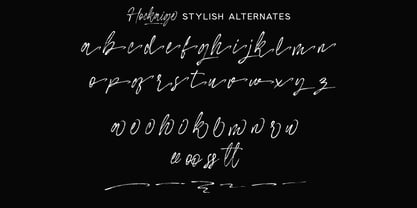 Hockrigo STYLISH ALTERNATES
a b c d e f g h i j k l m n
o p q r s t u v w x y z
a o c h o k b l m n r u
ee oo ss tt